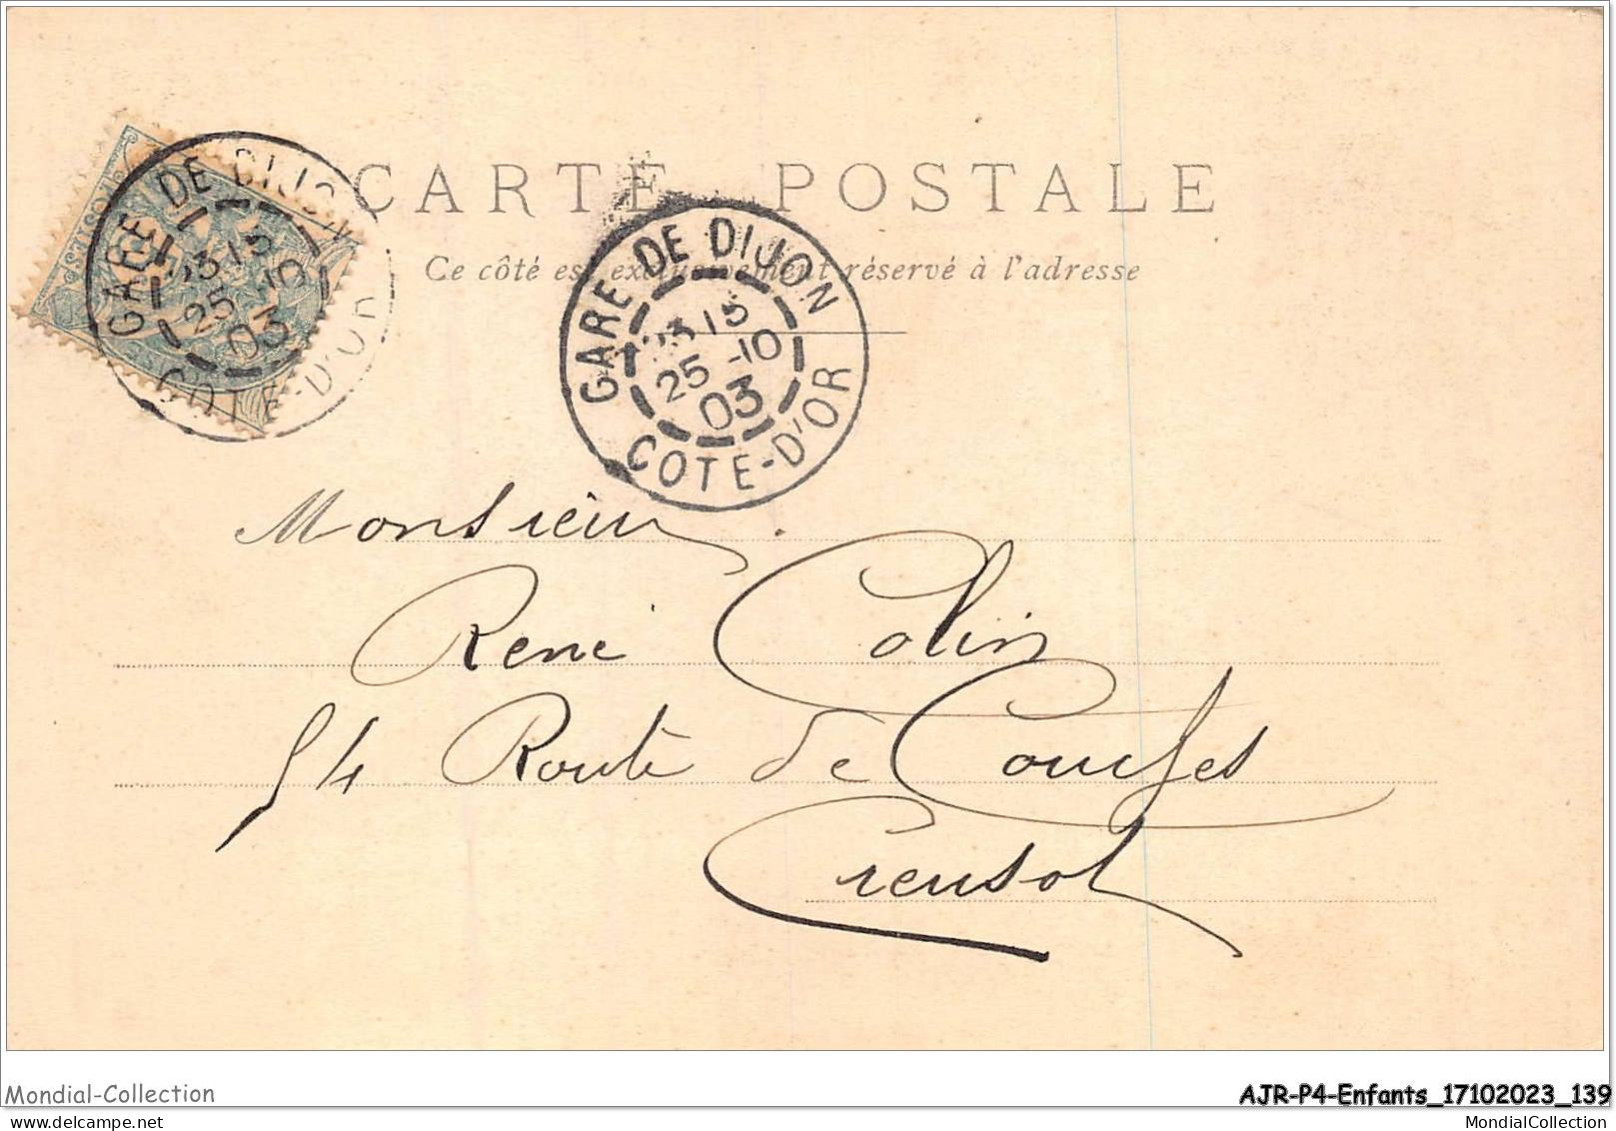 CARTE POSTALE
Ce côté est exclusivement réservé à l'adresse
GARE DE DIJON
23 15
25 -10
03
COTE-D'OR
GARE DE DIJON
23 15
25 -10
03
COTE-D'OR
Monsieur
René Colin
54 Route de Couches
Creusot
Mondial-Collection
AJR-P4-Enfants_17102023_139
MondialCollection